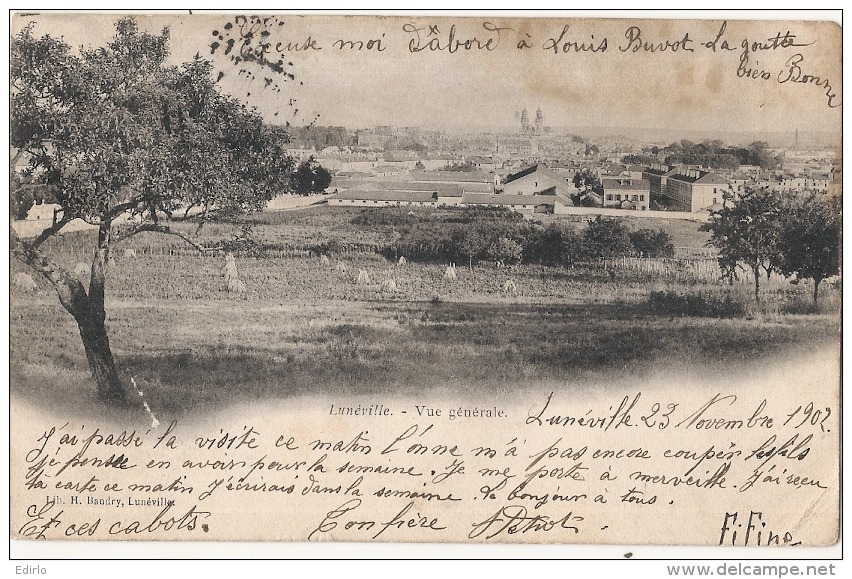 Excuse moi d'abord à Louis Buvot La goutte
bien Bonne
Lunéville. - Vue générale.
Lunéville 23 Novembre 1902.
J'ai passé la visite ce matin l'one m'a pas encore coupér les fils
je pense en avoir pour la semaine. Je me porte à merveille. J'ai recu
ta carte ce matin J'écrirais dans la semaine. Le bonjour à tous.
Lib. H. Baudry, Lunéville.
Et ces cabots. Ton frère
FiFine
www.delcampe.net